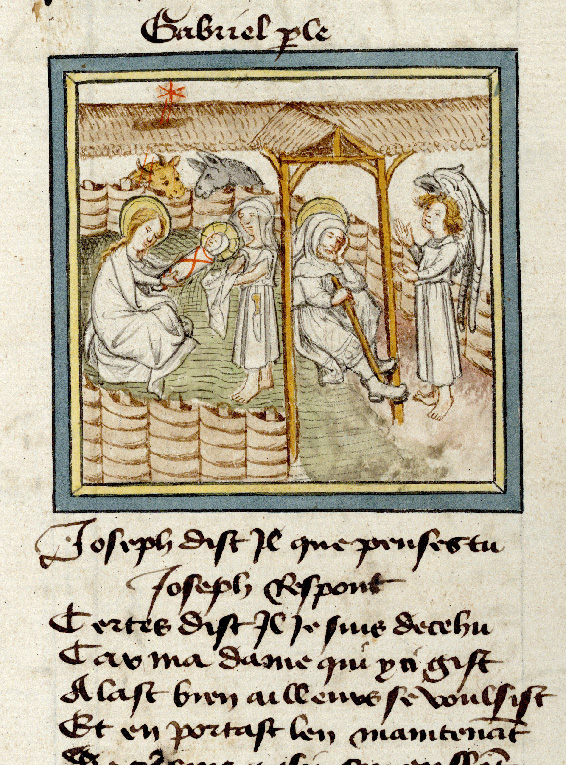 Gabriel ple
Joseph dist Il que penses tu
Joseph Respont
Certes dist Il Je suis decehu
Car ma dame qui y ci gist
A last bien ailleurs se voulsist
Et en portast len maintenāt